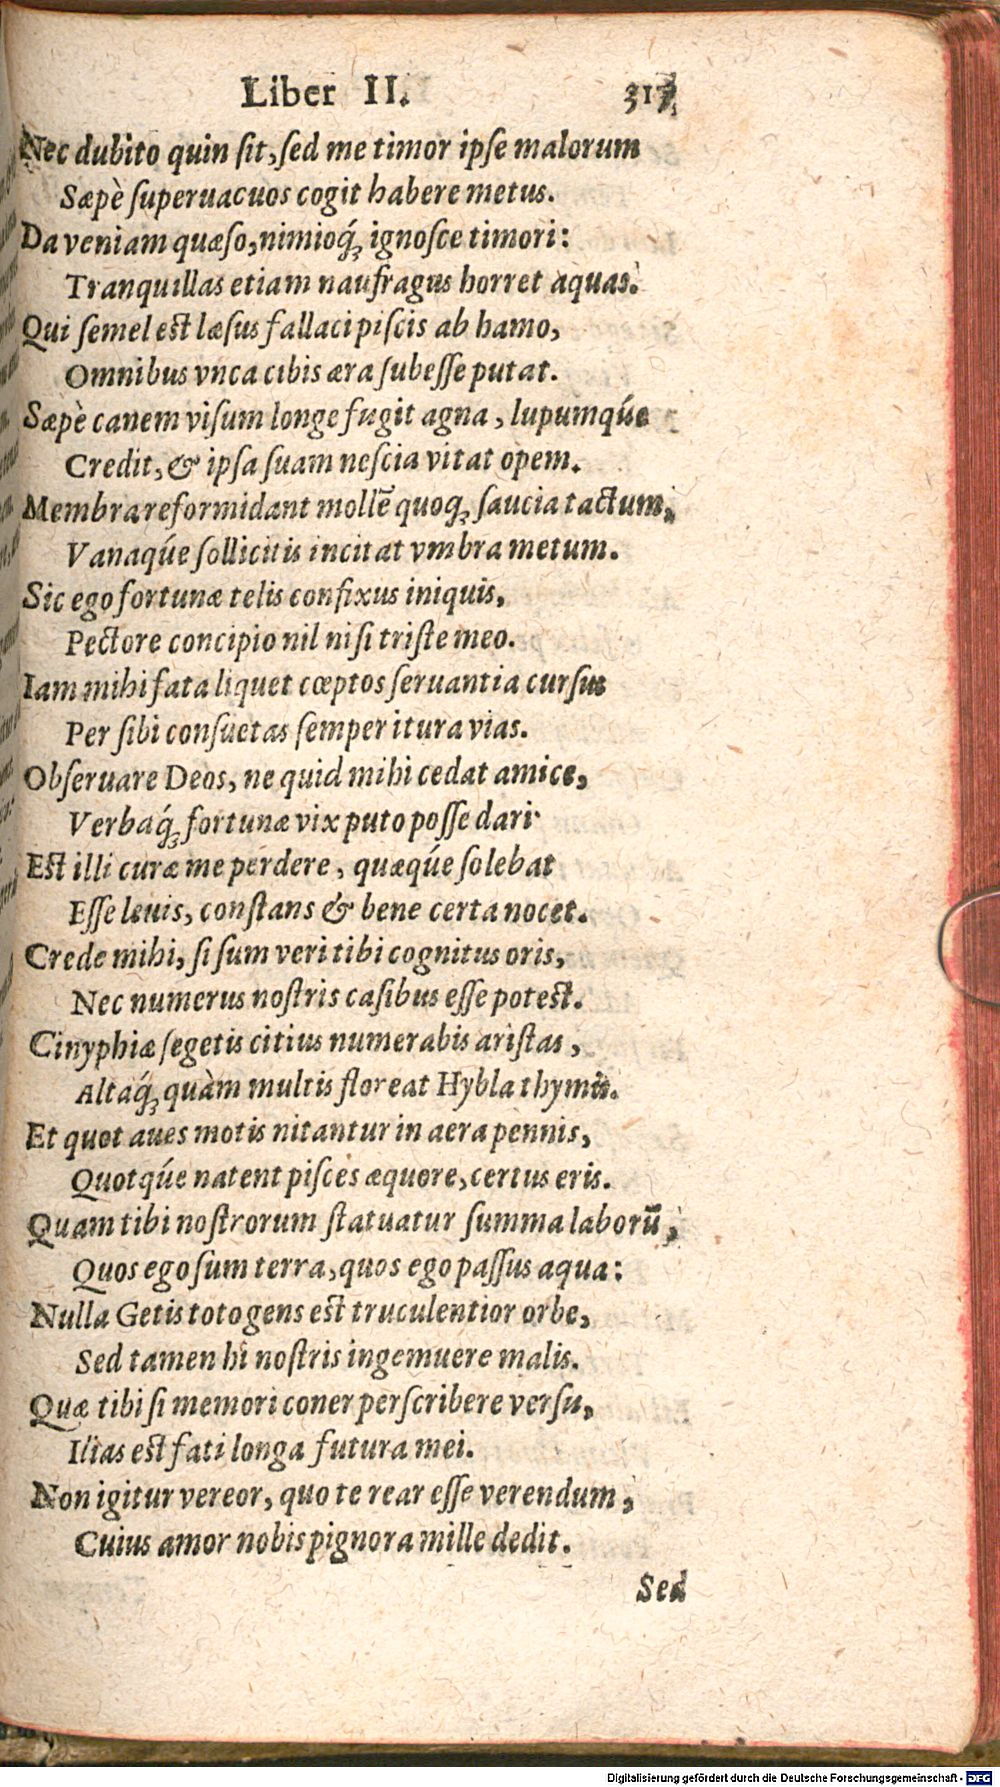 Liber II. 317
Nec dubito quin ſit, ſed me timor ipſe malorum
Sæpè ſuperuacuos cogit habere metus.
Da veniam quæſo, nimioq́; ignoſce timori:
Tranquillas etiam naufragus horret aquas.
Qui ſemel eſt læſus fallaci piſcis ab hamo,
Omnibus vnca cibis æra ſubeſſe putat.
Sæpè canem viſum longe fugit agna, lupumq́ue
Credit, & ipſa ſuam neſcia vitat opem.
Membra reformidant mollē quoq; ſaucia tactum,
Vanaq́ue ſollicitis incitat vmbra metum.
Sic ego fortunæ telis confixus iniquis,
Pectore concipio nil niſi triſte meo.
Iam mihi fata liquet cœptos ſeruantia curſus
Per ſibi conſuetas ſemper itura vias.
Obſeruare Deos, ne quid mihi cedat amice,
Verbaq́; fortunæ vix puto poſſe dari.
Eſt illi curæ me perdere, quæq́ue ſolebat
Eſſe leuis, conſtans & bene certa nocet.
Crede mihi, ſi ſum veri tibi cognitus oris,
Nec numerus noſtris caſibus eſſe poteſt.
Cinyphiæ ſegetis citius numerabis ariſtas,
Altaq́; quàm multis floreat Hybla thymis.
Et quot aues motis nitantur in aera pennis,
Quotq́ue natent piſces æquore, certus eris.
Quam tibi noſtrorum ſtatuatur ſumma laborū,
Quos ego ſum terra, quos ego paſſus aqua:
Nulla Getis toto gens eſt truculentior orbe,
Sed tamen hi noſtris ingemuere malis.
Quæ tibi ſi memori coner perſcribere verſu,
Ilias eſt fati longa futura mei.
Non igitur vereor, quo te rear eſſe verendum,
Cuius amor nobis pignora mille dedit.
Sed
Digitalisierung gefördert durch die Deutsche Forschungsgemeinschaft - DFG